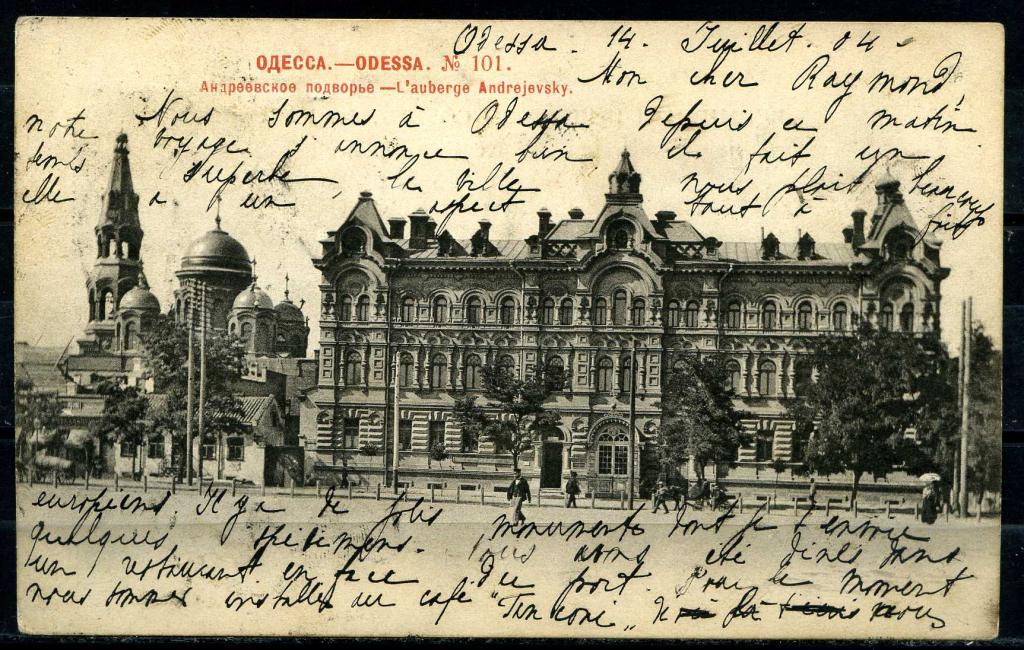 Odessa. 14. Juillet. 04.
ОДЕССА.—ODESSA. № 101.
Mon cher Raymond,
Андреевское подворье —L'auberge Andrejevsky.
Nous sommes à Odessa depuis ce matin
notre voyage s'annonce bien il fait un
temps superbe, la ville nous plait beaucoup
elle a un aspect tout à fait
européens. Il y a de jolis monuments dont je t'envoie
quelques spécimens. Nous avons été dîner dans
un restaurant en face du port. Pour le moment
nous sommes installés au café "Fanconi" nous